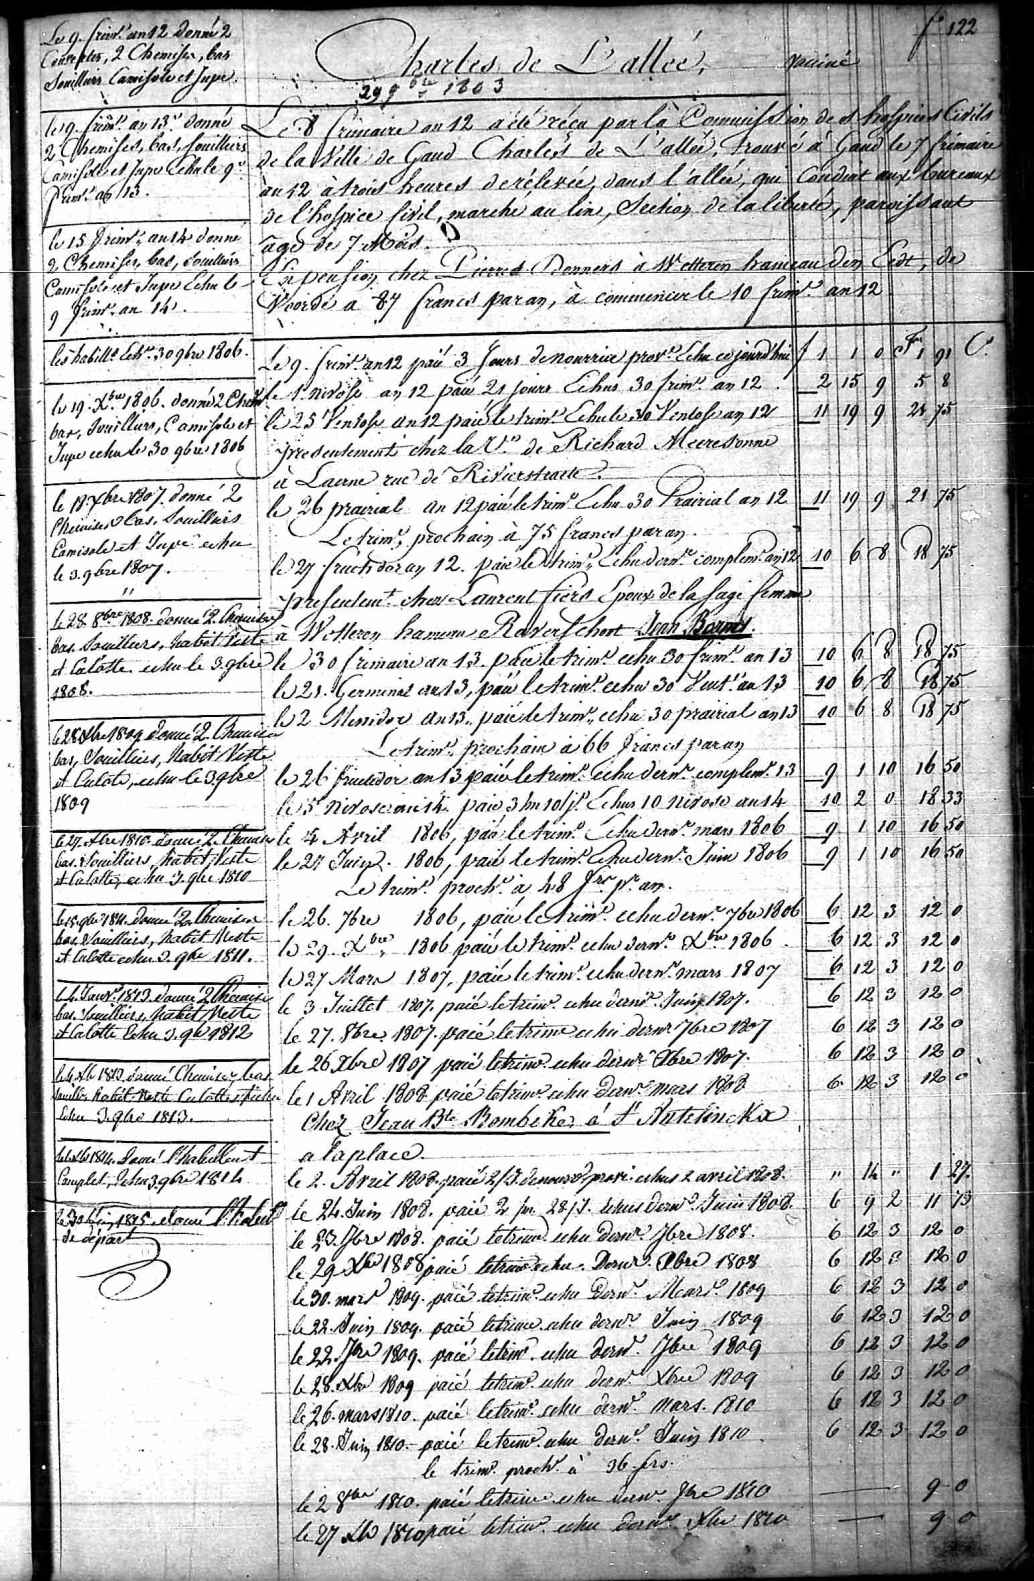 fo 122
Charles de L'allée,
vacciné
29 9bre 1803
Le 8 frimaire an 12 a été récu par la Commission des hospices Civils
de la Ville de Gand Charles de L'allée, trouvé à Gand le 7 frimaire
an 12 à trois heures de rélevée, dans l'allée, que Conduit aux bureaux
de l'hospice Civil, marché au lin, Section de la liberté, paroissant
âgé de 7 Mois.
En pension chez Pierre Donners à Wetteren hameau den Edt, de
Voorde a 87 francs par an, à commencer le 10 frimre an 12
Le 9 frimre an 12 paié 3 Jours de nourrice provre Echu ce jourd'hui £ 1 1 0 Frs 1 91 Cs
le 1r nivose an 12 paié 21 jours Echus 30 frimre an 12 2 15 9 5 8
le 25 Ventose an 12 paié le trimre Echu le 30 Ventose an 12 11 19 9 21 75
présentement chez la Ve de Richard Meeresonne
à Laerne rue de Rivierstraete.
le 26 prairial an 12 paié le trimre Echu 30 Prairial an 12 11 19 9 21 75
Le trimre prochain à 75 francs par an.
le 27 fructidor an 12. paié le trimre Echu dernr complemre an 12 10 6 8 18 75
presentemt chez Laurent fiers Epoux de la sage femme
à Wetteren hameau Raverschoot Jean Barms.
le 30 frimaire an 13. paié le trimre echu 30 frimre an 13 10 6 8 18 75
le 21. Germinal an 13, paié le trimre echu 30 Vent. an 13 10 6 8 18 75
le 2 Messidor an 13. paié le trimre echu 30 prairial an 13 10 6 8 18 75
Le trimre prochain à 66 francs par an
le 26 fructidor an 13 paié le trimre echu dernr complemre 13 9 1 10 16 50
le 5 nivose an 14. paié 3 m 10 js Echus 10 nivose an 14 10 2 0 18 33
le 4 Avril 1806, paié le trimre Echu dernr mars 1806 9 1 10 16 50
le 27 Juin. 1806, paié le trimre Echu dernr Juin 1806 9 1 10 16 50
Le trimre proche à 48 frs pr an.
le 26. 7bre 1806, paié le trimre echu dernr 7bre 1806 6 12 3 12 0
le 29. Xbre 1806, paié le trimre echu dernr Xbre 1806. 6 12 3 12 0
le 27 Mars 1807, paié le trimre echu dernr mars 1807 6 12 3 12 0
le 3 Juillet 1807. paié le trimre echu dernr Juin 1807. 6 12 3 12 0
le 27. 8bre 1807. paié le trimre echu dernr 7bre 1807 6 12 3 12 0
le 26 Xbre 1807 paié le trimre echu dernr Xbre 1807. 6 12 3 12 0
le 1 Avril 1808 paié le trimre echu dernr mars 1808 6 12 3 12 0
Chez Jean Bte Bombeke à St Antelinckx
a la place.
le 2. Avril 1808. paié 2/js de nourre provre echus 2 avril 1808. " 14 " 1 27.
le 24 Juin 1808. paié 2 m. 28 js. echus dernr Juin 1808. 6 9 2 11 73
le 23. 7bre 1808. paié le trimre echu dernr 7bre 1808. 6 12 3 12 0
le 29 Xbre 1808 paié le trimre echu. dernr. Xbre 1808 6 12 3 12 0
le 30. mars 1809. paié le trimre echu dernr Mars. 1809 6 12 3 12 0
le 22. Juin 1809. paié le trimre echu dernr Juin 1809 6 12 3 12 0
le 22. 7bre 1809. paié le trimre echu dernr 7bre 1809 6 12 3 12 0
le 28. Xbre 1809 paié le trimre echu dernr Xbre 1809 6 12 3 12 0
le 26. mars 1810. paié le trimre echu dernr mars. 1810 6 12 3 12 0
le 28. Juin 1810.- paié le trimre echu dernr Juin 1810 6 12 3 12 0
le trimre prochr à 36 frs.
le 2 8bre 1810. paié le trimre echu dernr 7bre 1810 — 9 0
le 27 Xbre 1810 paié le trimre echu dernr Xbre 1810 — 9 0
Le 9 frimre an 12 donné 2
Couvertes, 2 Chemises, bas
Souilliers Camisole et Jupe.
le 9. frimre an 13. donné
2 Chemises, bas, souilliers,
Camisole et Jupe Echu le 9
frimre an 13.
le 15 frimre an 14 donné
2 Chemises, bas, souilliers
Camisole et Jupe Echu le
9 frimre an 14.
les habillts Echs 30 9bre 1806.
le 19. Xbre 1806. donné 2 Chem
bas, souilliers, Camisole et
Jupe echu le 30 9bre 1806
le 18. Xbre 1807. donné 2
Chemises bas, Souilliers
Camisole et Jupe echu
le 3. 9bre 1807.
"
le 28 8bre 1808. donné 2 Chemises
bas. Souilliers, habit Veste
et Culotte. echu le 3. 9bre
1808.
le 28 Xbre 1809 donné 2 Chemises
bas, Souilliers, Habit Veste
et Culote, echu le 3 9bre
1809
le 27. Xbre 1810. donné 2 Chemises
bas. Souilliers, habit Veste
et Culotte, echu 3. 9bre 1810
le 15 9bre 1811. donné 2 Chemises
bas. Souilliers, habit Veste
et Culotte echu 3. 9bre 1811.
le 4. Janvr 1813 donné 2 Chemises
bas. Souilliers, Habit Veste
et Culotte Echu 3. 9bre 1812
le 4 Xbre 1813. donné Chemises, bas
Souilliers Habit Veste Culotte
Echu 3. 9bre 1813.
le Xbre 1814. donné l'habillemt
Complet, Echu 3. 9bre 1814
le 30 Juin 1815. donné l'habit
de départ